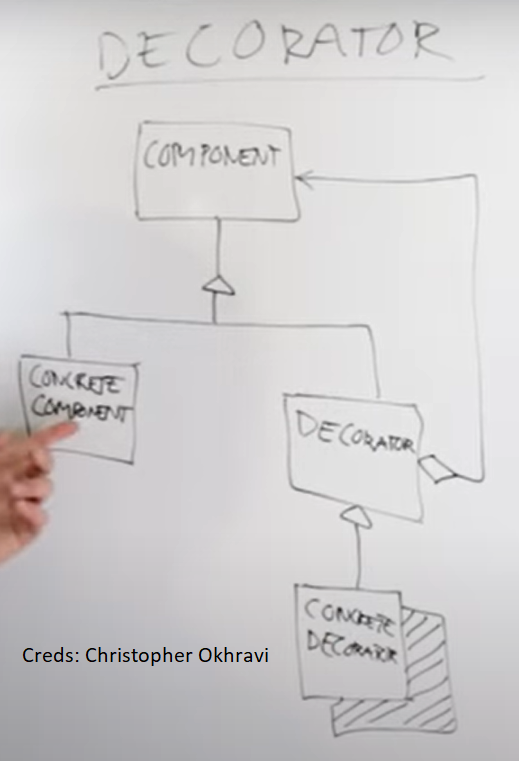 DECORATOR
COMPONENT
CONCRETE
COMPONENT
DECORATOR
CONCRETE
DECORATOR
Creds: Christopher Okhravi